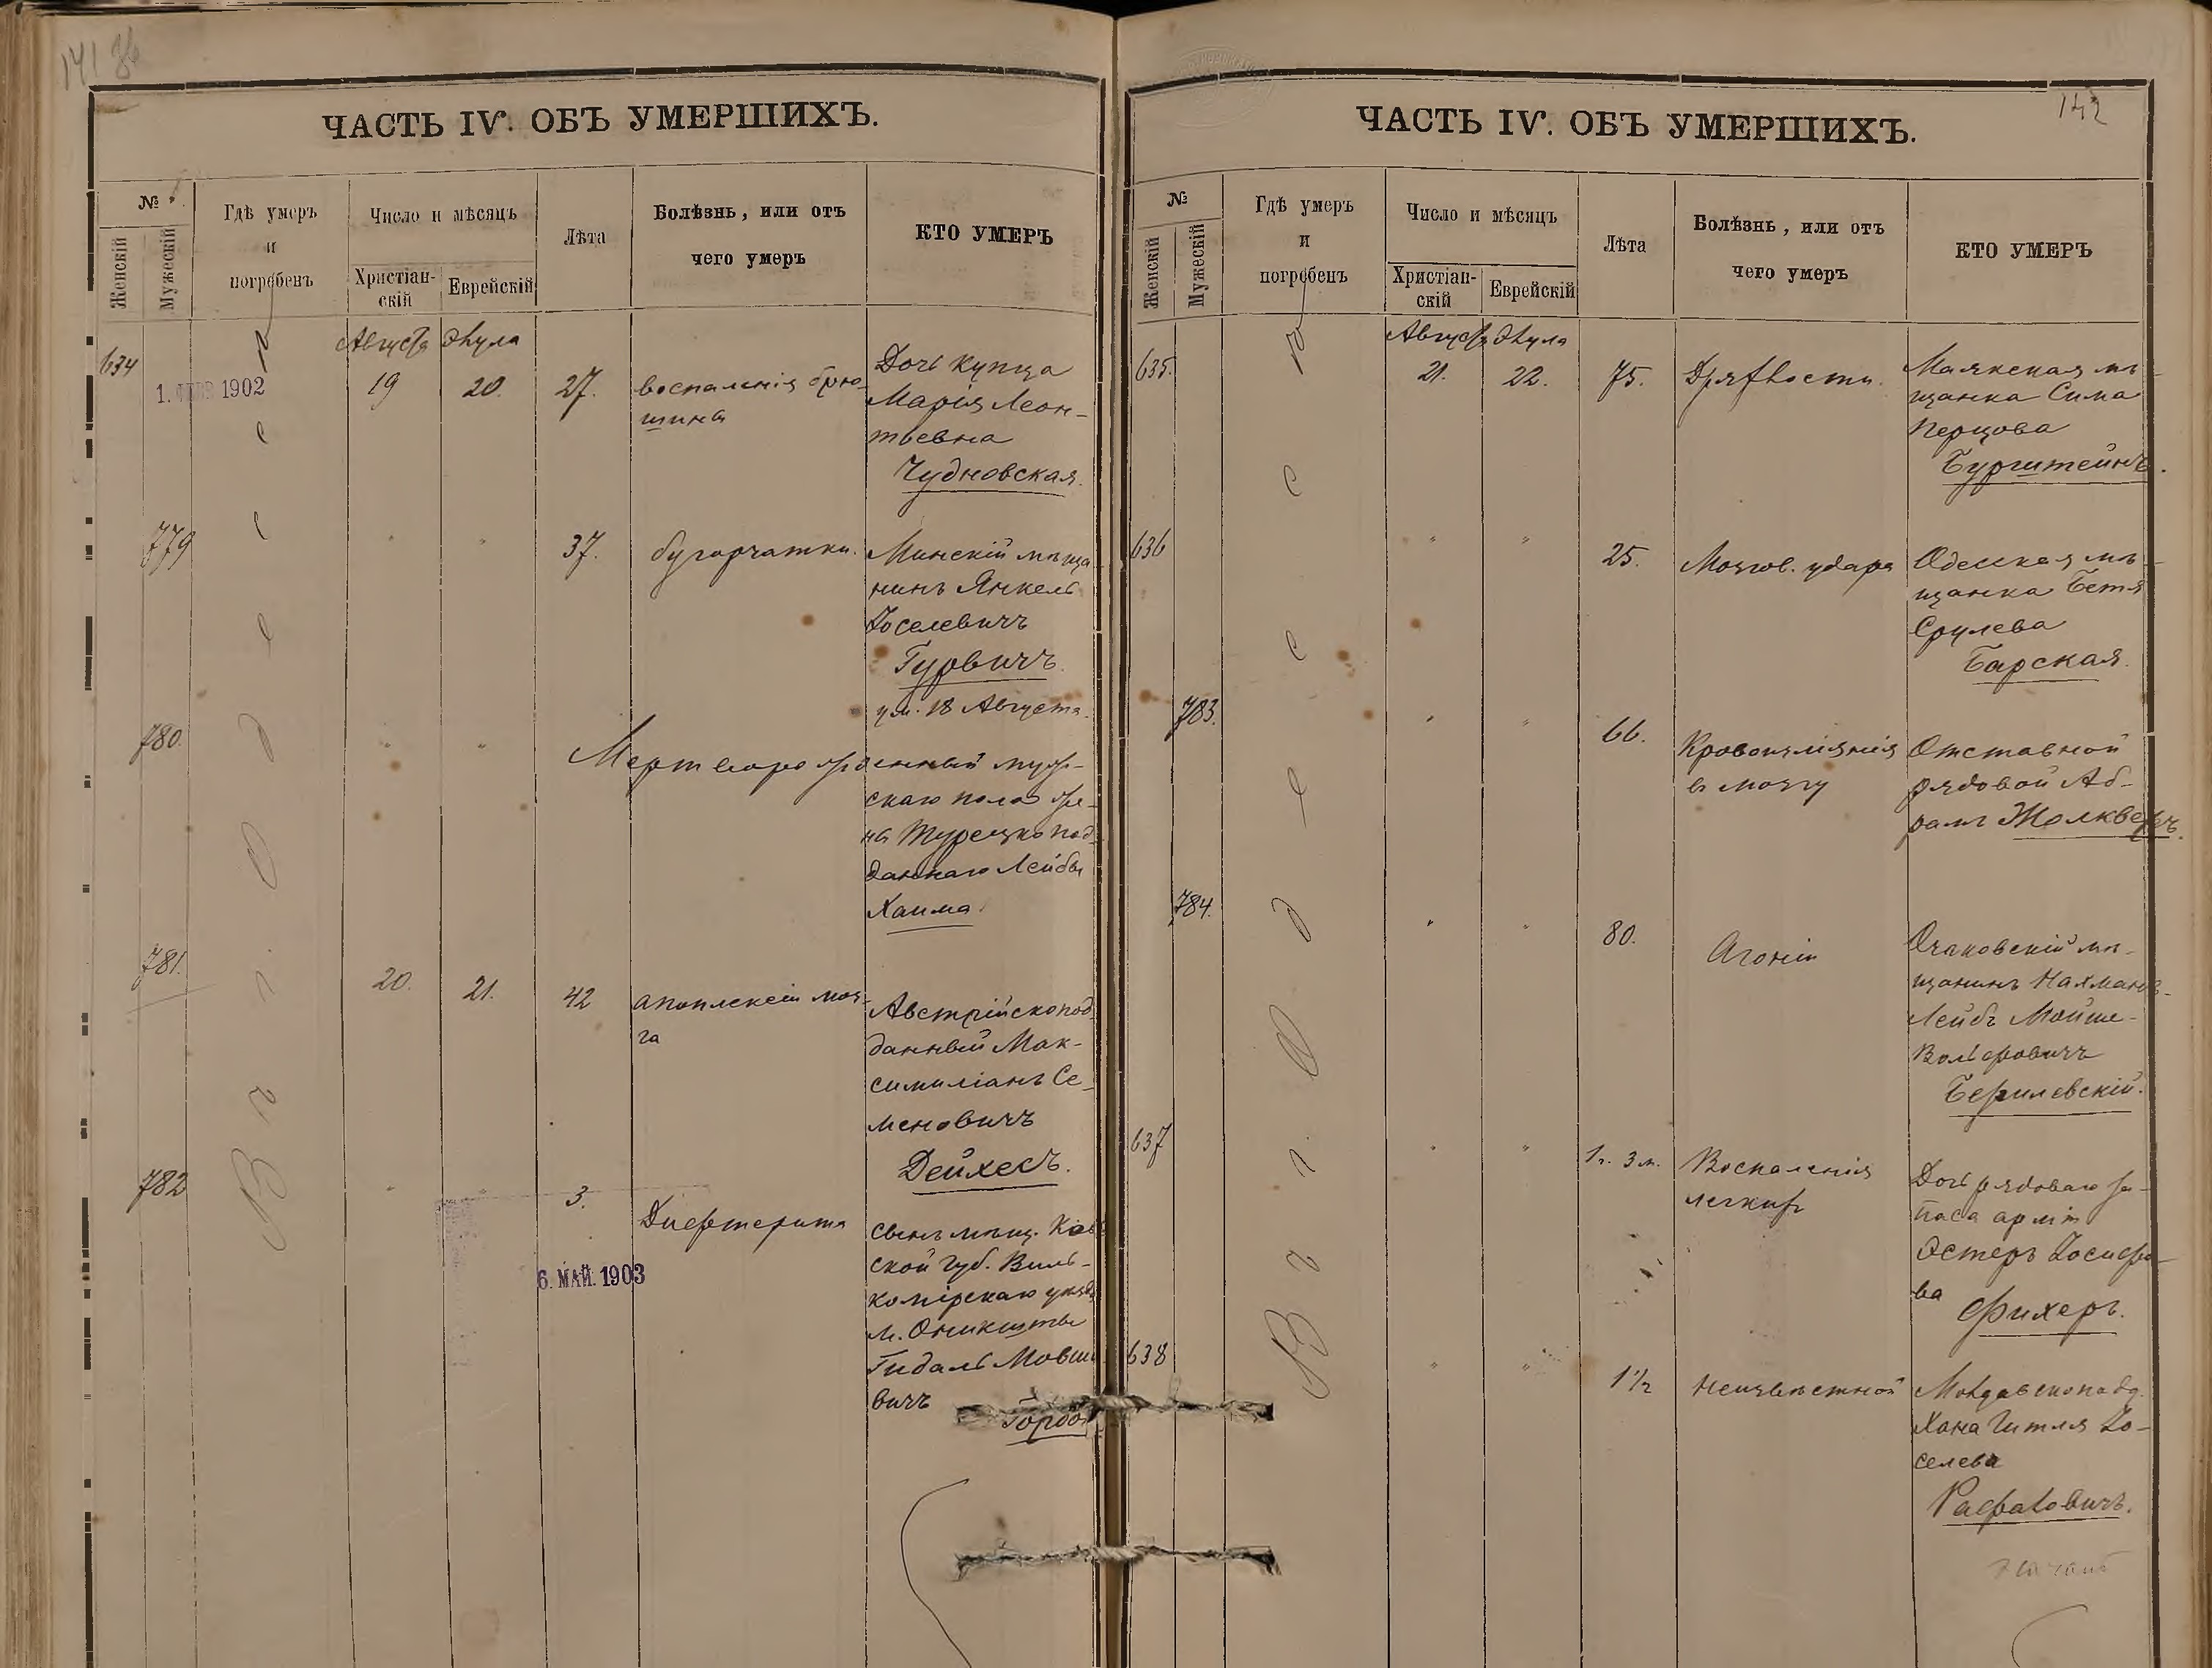 141
ЧАСТЬ IV. ОБЪ УМЕРШИХЪ.
№
Женскій
Мужескій
Гдѣ умеръ
и
погребенъ
Число и мѣсяцъ
Христіан-
скій
Еврейскій
Лѣта
Болѣзнь, или отъ
чего умеръ
КТО УМЕРЪ
Августа Элула
634
1. 1902
19
20.
27.
воспаленія брю-
шины
Дочь купца
Марія Леон-
тьевна
Чудновская.
779
"
"
37.
бугорчатки.
Минскій мѣща
нинъ Янкель
Іоселевичъ
Гуровичъ.
ум. 18 Августа.
780.
"
"
Мертворожденный муж-
скаго пола же-
ны Турецкопод-
даннаго Лейбы
Хаима.
781.
20.
21.
42
апоплексіи моз-
га
Австрійскопод
данный Мак-
симиліанъ Се-
меновичъ
Дейхесъ.
782
"
"
3.
Дифтерита
6. МАЙ. 1903
сынъ мѣщ. Ков
ской Губ. Виль-
комірскаго уѣзда
м. Оникшты
Гидаль Мовш
вичъ
Гордо
В г. г. О д е с с
142
ЧАСТЬ IV. ОБЪ УМЕРШИХЪ.
№
Женскій
Мужескій
Гдѣ умеръ
и
погребенъ
Число и мѣсяцъ
Христіан-
скій
Еврейскій
Лѣта
Болѣзнь, или отъ
чего умеръ
КТО УМЕРЪ
Августа Элула
635.
21.
22.
75.
Дряхлости.
Маякская мѣ-
щанка Сима
Перцова
Бургштейнъ.
636
"
"
25.
Мозгов. удара
Одесская мѣ-
щанка Бетя
Срулева
Барская.
783.
"
"
66.
Кровоизліянія
въ мозгу
Отставной
рядовой Аб-
рамъ Жолкверъ.
784.
"
"
80.
Агоніи
Очаковскій мѣ-
щанинъ Нахманъ-
Лейбъ Мойше-
Вольфовичъ
Берилевскій.
637
"
"
1 г. 3 м.
Воспаленія
легкихъ
Дочь рядоваго за-
паса арміи
Эстеръ Іосифо-
ва Фихеръ.
638
"
"
1 1/2
Неизвѣстной
Молдавскоподд.
Хана Гитля Іо-
селева
Рафаловичъ.
В г. г. О д е с с